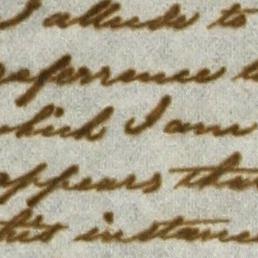 I allude to
referrence
which I am
appears that
this instance